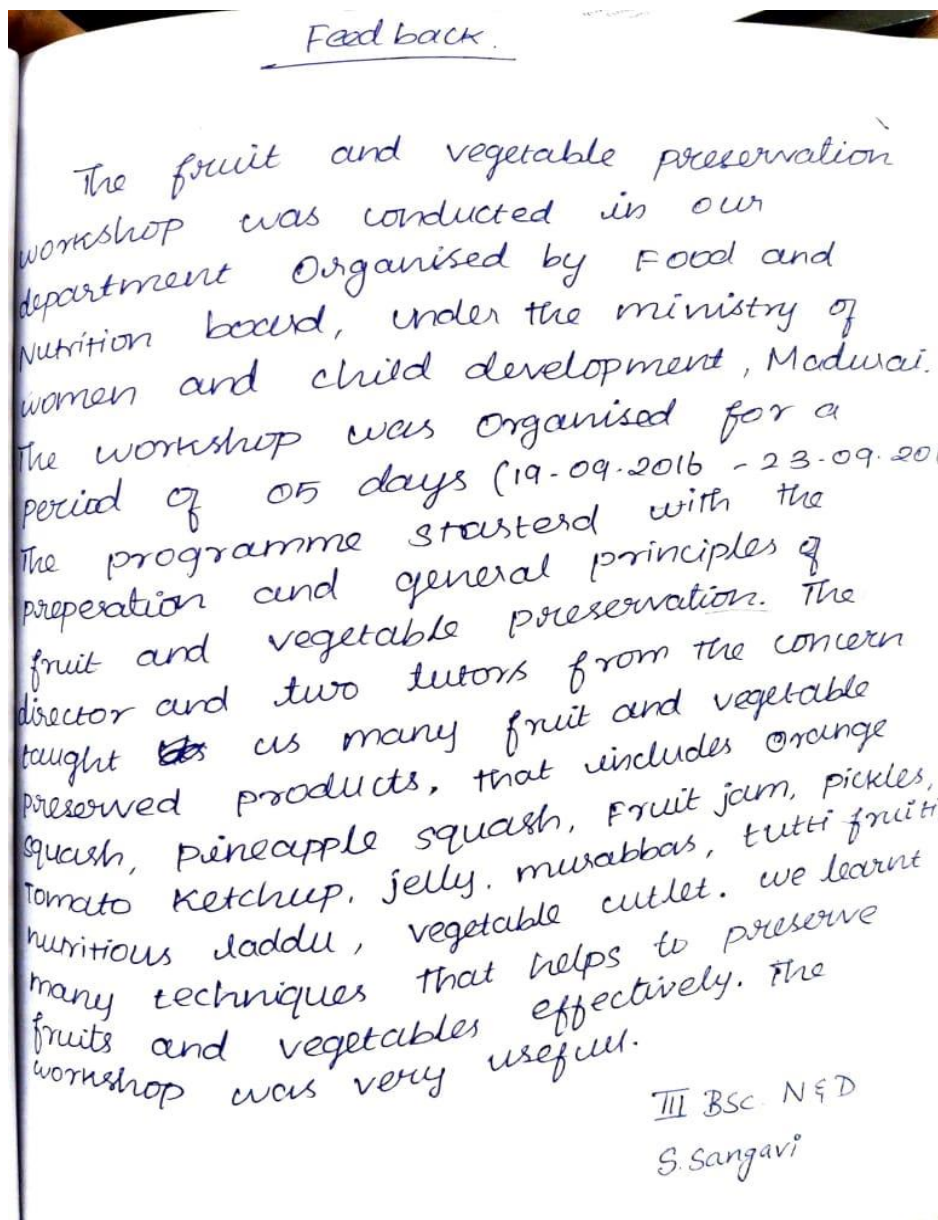 Feed back.
The fruit and vegetable preservation
workshop was conducted in our
department Organised by Food and
Nutrition board, under the ministry of
women and child development, Madurai.
The workshop was Organised for a
period of 05 days (19-09-2016 - 23.09.20
The programme starterd with the
preperation and general principles of
fruit and vegetable preservation. The
director and two tutors from the concern
taught us many fruit and vegetable
preserved products, that includes Orange
squash, pineapple squash, Fruit jam, pickles,
Tomato ketchup, jelly, murabbas, tutti fruiti
nutritious laddu, vegetable cutlet. we learnt
many techniques that helps to preserve
fruits and vegetables effectively. The
workshop was very useful.
III BSc. N & D
S. Sangavi